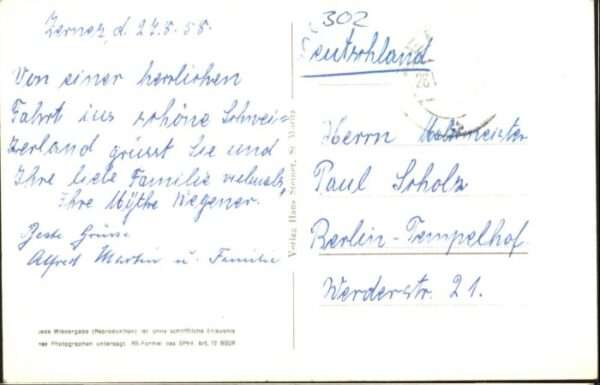 302
Deutschland
Zernez, d. 27.8.58.
Von einer herrlichen
Fahrt ins schöne Schwei-
zerland grüsst Sie und
Ihre liebe Familie vielmals,
Ihre Wegener.
Beste Grüsse
Alfred Martin u. Familie
Verlag Hans Steiner, St. Moritz
Herrn Malermeister
Paul Scholz
Berlin-Tempelhof.
Werderstr. 21.
Jede Wiedergabe (Reproduktion) ist ohne schriftliche Erlaubnis
des Photographen untersagt. RB-Formel des SPhV. Art. 12 BGUR